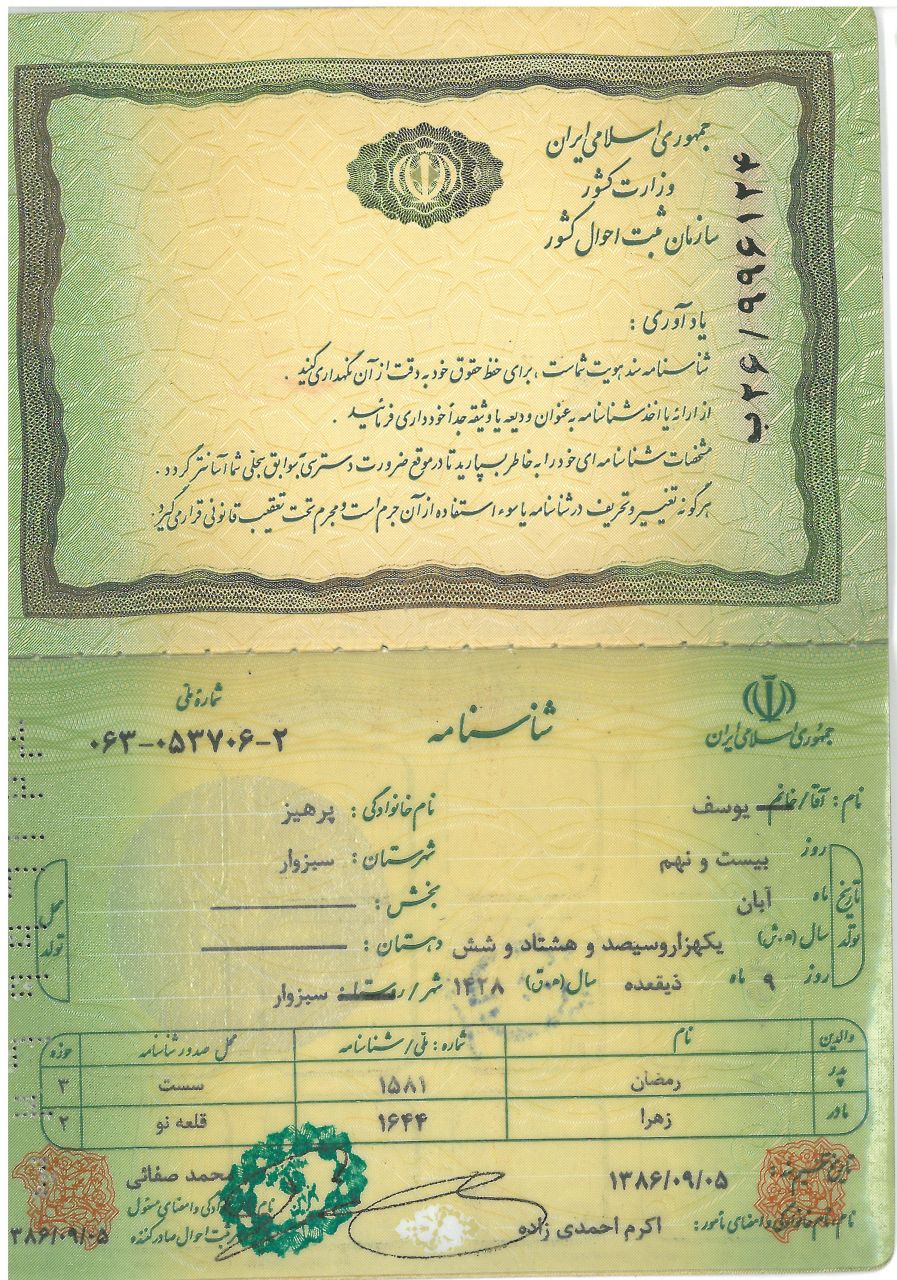 جمهوری اسلامی ایران
وزارت کشور
سازمان ثبت احوال کشور
ب۲۶/۹۹۶۱۲۴
یادآوری :
شناسنامه سند هویت شماست ، برای حفظ حقوق خود به دقت از آن نگهداری کنید .
از ارائه یا اخذ شناسنامه به عنوان ودیعه یا وثیقه جداً خودداری فرمائید .
مشخصات شناسنامه ای خود را به خاطر بسپارید تا در موقع ضرورت دسترسی به سوابق سجلی شما آسانتر گردد .
هرگونه تغییر و تحریف در شناسنامه یا سوء استفاده از آن جرم است و مجرم تحت تعقیب قانونی قرار می گیرد .
جمهوری اسلامی ایران
شناسنامه
شماره ملی
۰۶۳-۰۵۳۷۰۶-۲
نام : آقا/خانم یوسف نام خانوادگی : پرهیز
تاریخ تولد
روز بیست و نهم
ماه آبان
سال (ه.ش) یکهزاروسیصد و هشتاد و شش
روز ۹ ماه ذیقعده سال (ه.ق) ۱۴۲۸
محل تولد
شهرستان : سبزوار
بخش :
دهستان :
شهر/روستا سبزوار
والدین نام شماره : ملی/شناسنامه محل صدور شناسنامه حوزه
پدر رمضان ۱۵۸۱ سست ۳
مادر زهرا ۱۶۴۴ قلعه نو ۲
تاریخ تنظیم سند : ۱۳۸۶/۰۹/۰۵
نام، نام خانوادگی و امضای مأمور : اکرم احمدی زاده
محمد صفائی
نام خانوادگی و امضای مسئول
ثبت احوال صادرکننده
۱۳۸۶/۰۹/۰۵